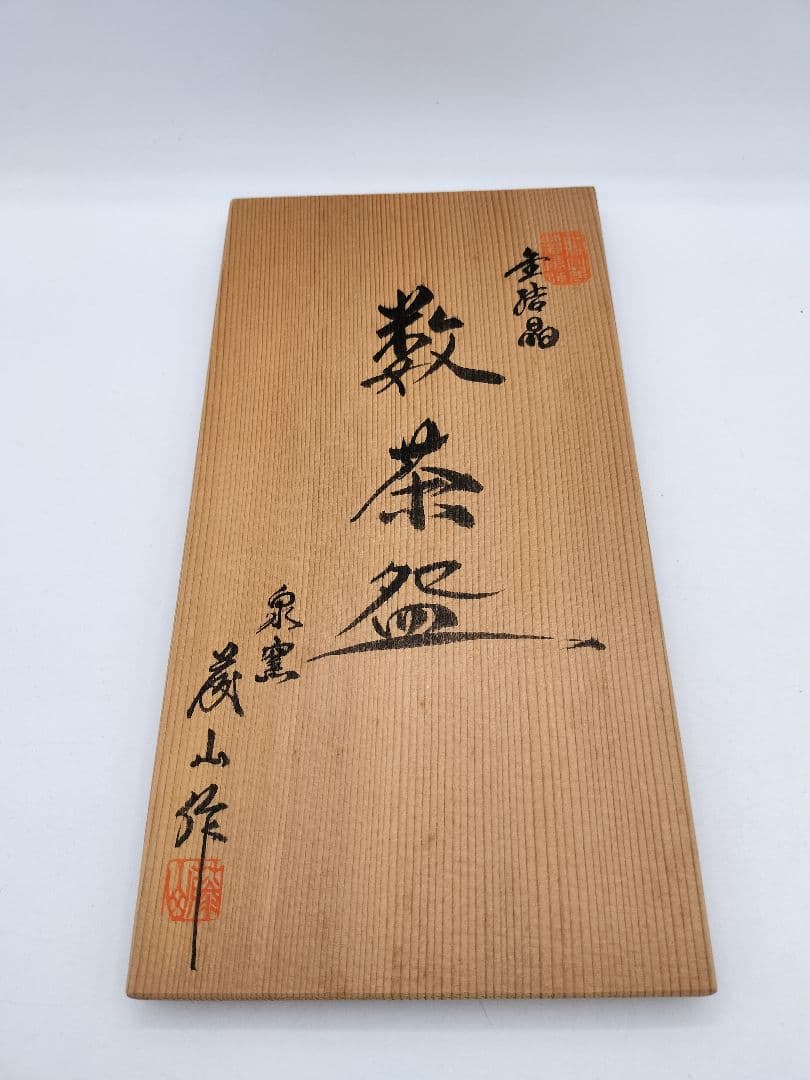 金結晶
数茶盌
泉窯
茂山作